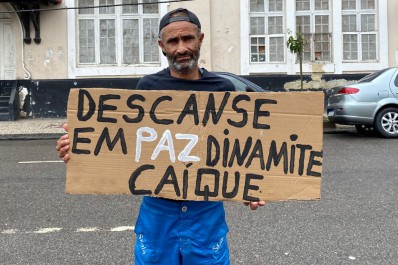 DESCANSE
EM PAZ DINAMITE
CAÍQUE